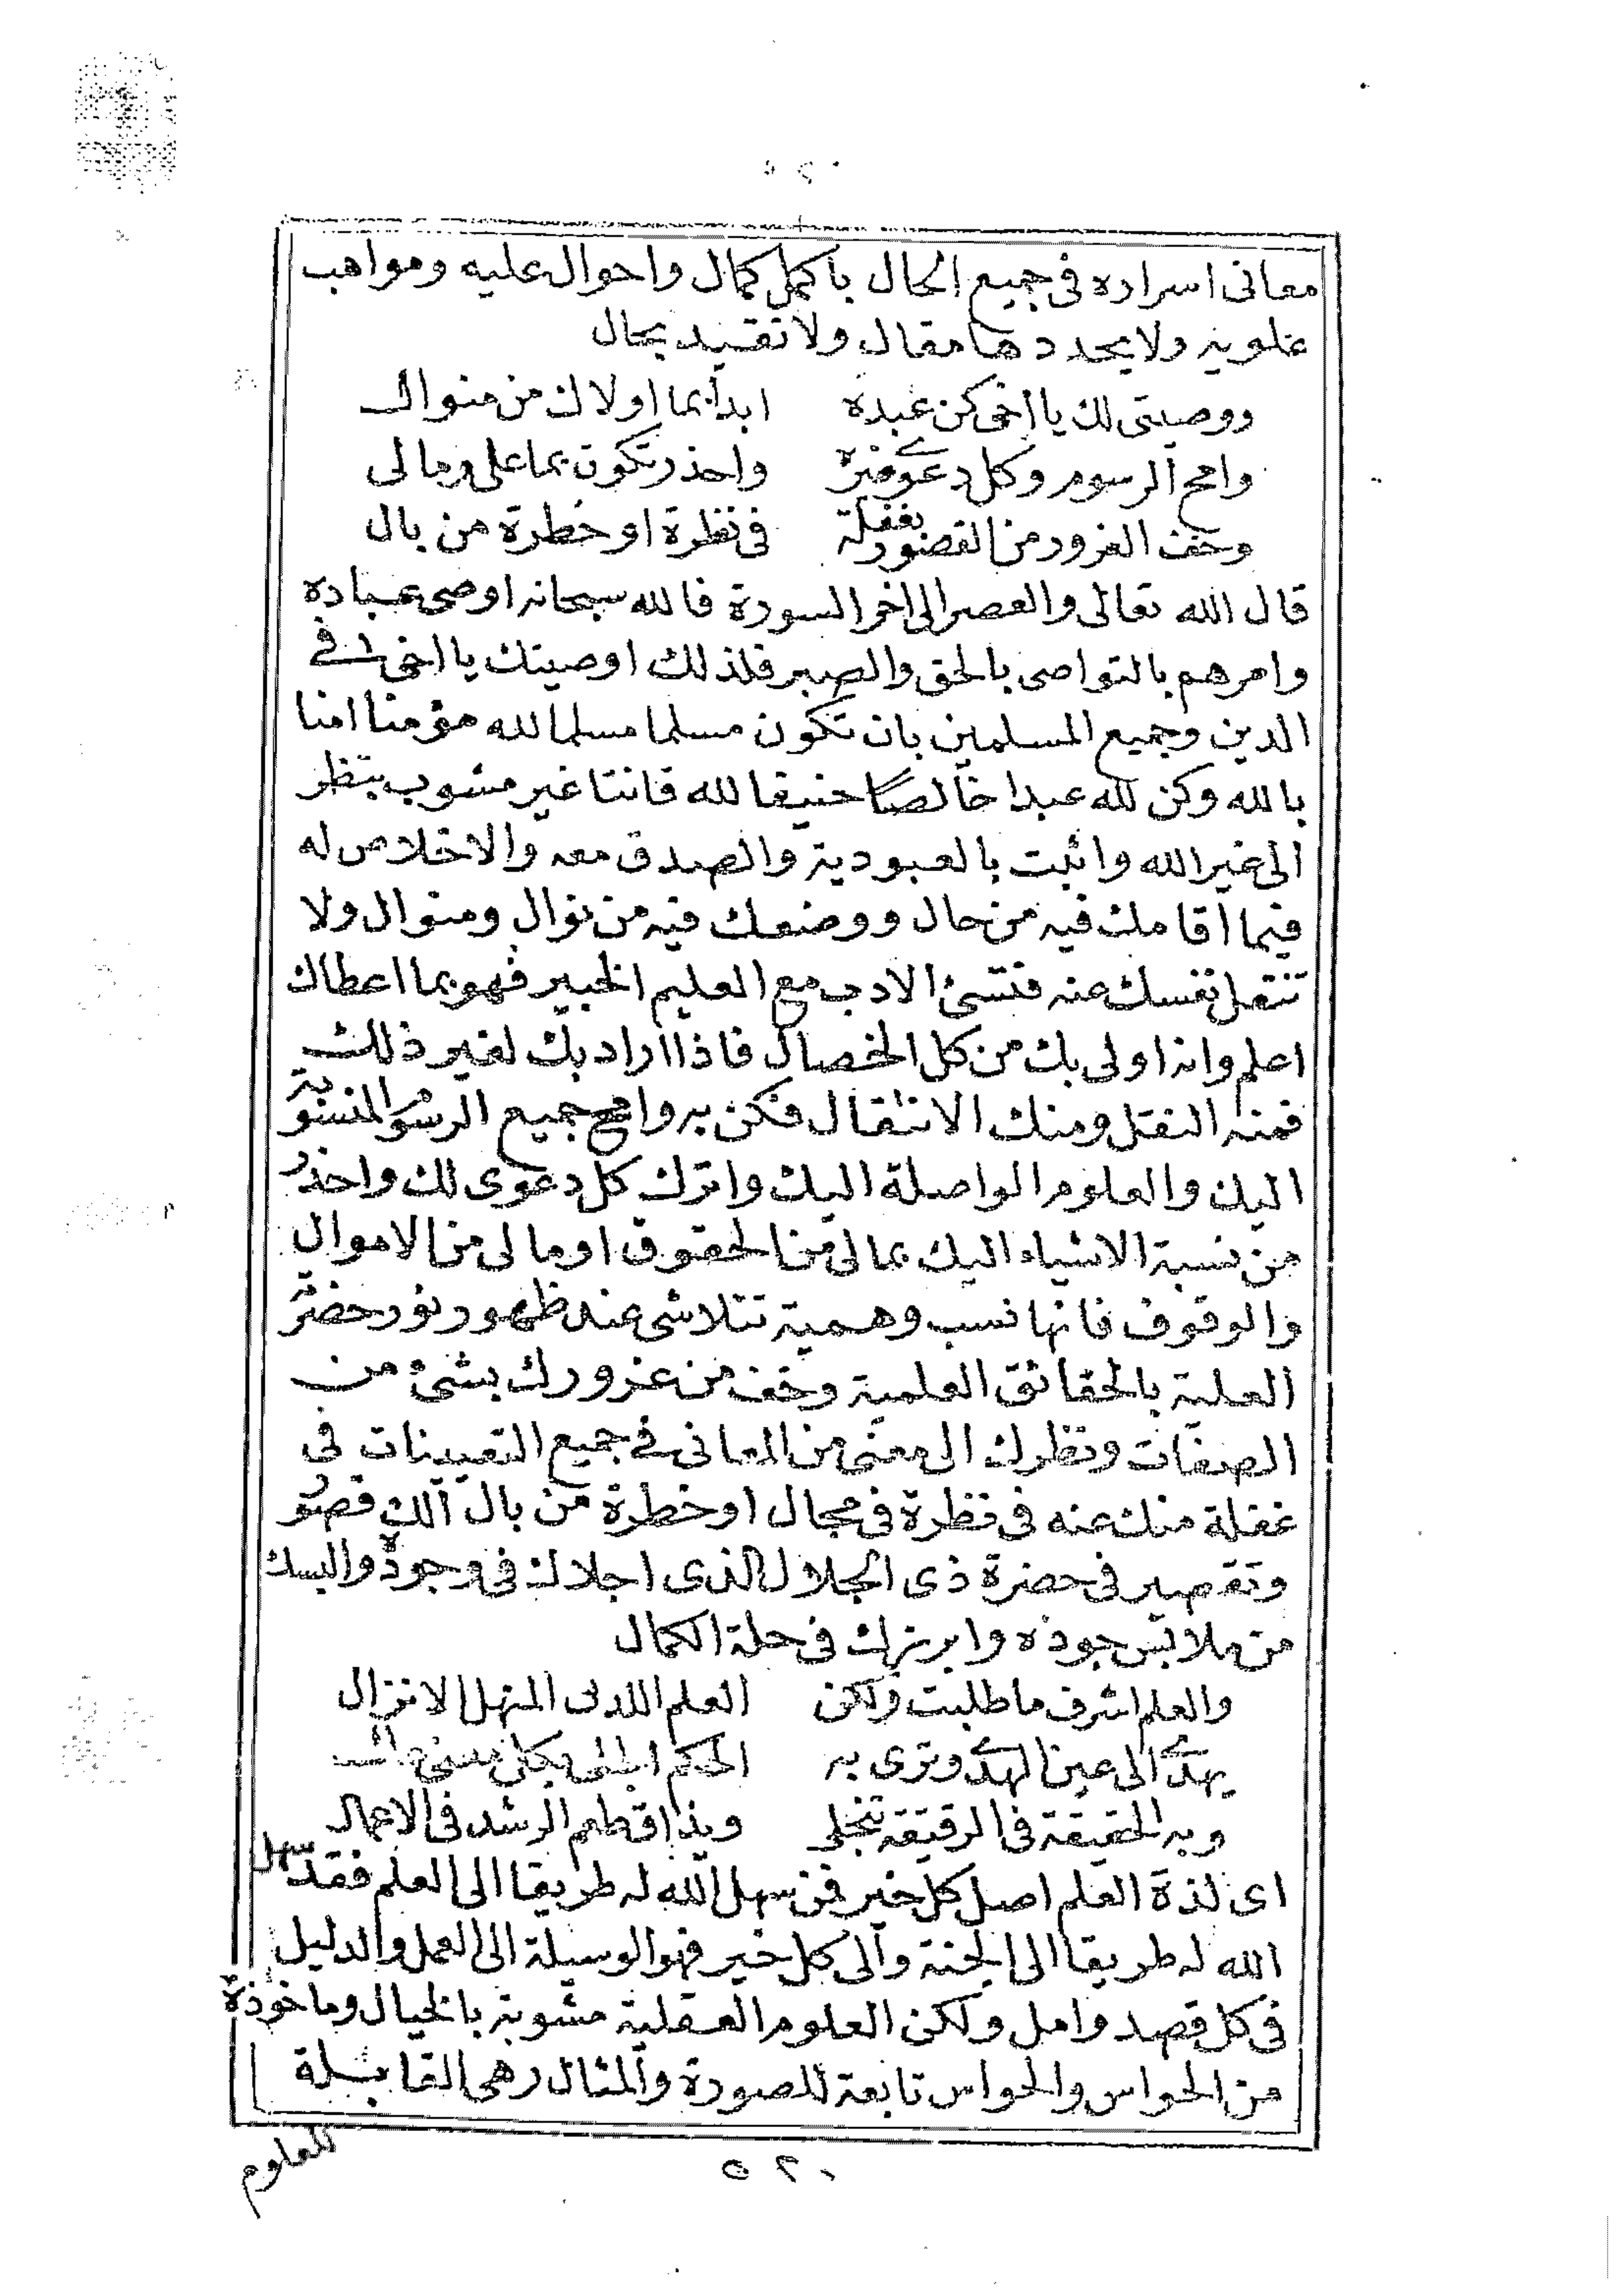 معانى اسراره فى جميع الحال باكمل كمال واحوال عليه ومواهب
علويه ولا يحددها مقال ولا تقيد بحال
ووصيتى لك يا اخى كن عبده ابدا بما اولاك من منوال
وامح الرسوم وكل دعوى واحذر تكون بما على وما لى
وخف الغرور من القصور بغفلة فى نظرة او خطرة من بال
قال الله تعالى والعصر الى اخر السورة فالله سبحانه اوصى عباده
وامرهم بالتواصى بالحق والصبر فلذلك اوصيتك يا اخى فى
الدين وجميع المسلمين بان تكون مسلما مسلما لله مؤمنا امنا
بالله وكن لله عبدا خالصا حنيفا لله قانتا غير مشوب بنظر
الى غير الله واثبت بالعبودية والصدق معه والاخلاص له
فيما اقامك فيه من حال ووضعك فيه من نوال ومنوال ولا
تنتقل بنفسك عنه فتسئ الادب مع العليم الخبير فهو بما اعطاك
اعلم وانه اولى بك من كل الخصال فاذا اراد بك لغير ذلك
فمنه النقل ومنك الانتقال فكن به وامح جميع الرسوم المنسوبة
اليك والعلوم الواصلة اليك واترك كل دعوى لك واحذر
من نسبة الاشياء اليك بما لى من الحقوق او ما لى من الاموال
والوقوف فانها نسب وهمية تتلاشى عند ظهور نور حضرته
العلية بالحقائق العلمية وخف من غرورك بشئ من
الصفات ونظرك الى معنى من المعانى فى جميع التعينات فى
غفلة منك عنه فى نظرة فى مجال او خطرة من بال الك قصور
وتقصير فى حضرة ذى الجلال الذى اجلاك فى وجوده والبسك
من ملابس جوده وابرزك فى حلة الكمال
والعلم اشرف ما طلبت ولكن العلم اللدنى المنهل الانزال
يهدى الى عين الهدى وترى به الحكم الجلى بكل
وبه الحقيقة فى الرقيقة تنجلى وبذا قطم الرشد فى الاعمال
اى لذة العلم اصل كل خير فمن سهل الله له طريقا الى العلم فقد سهل
الله له طريقا الى الجنة والى كل خير فهو الوسيلة الى العمل والدليل
فى كل قصد وامل ولكن العلوم العقلية مشوبة بالخيال وماخوذة
من الحواس والحواس تابعة للصورة والمثال وهى القابلة
للعلوم
٥٢٠